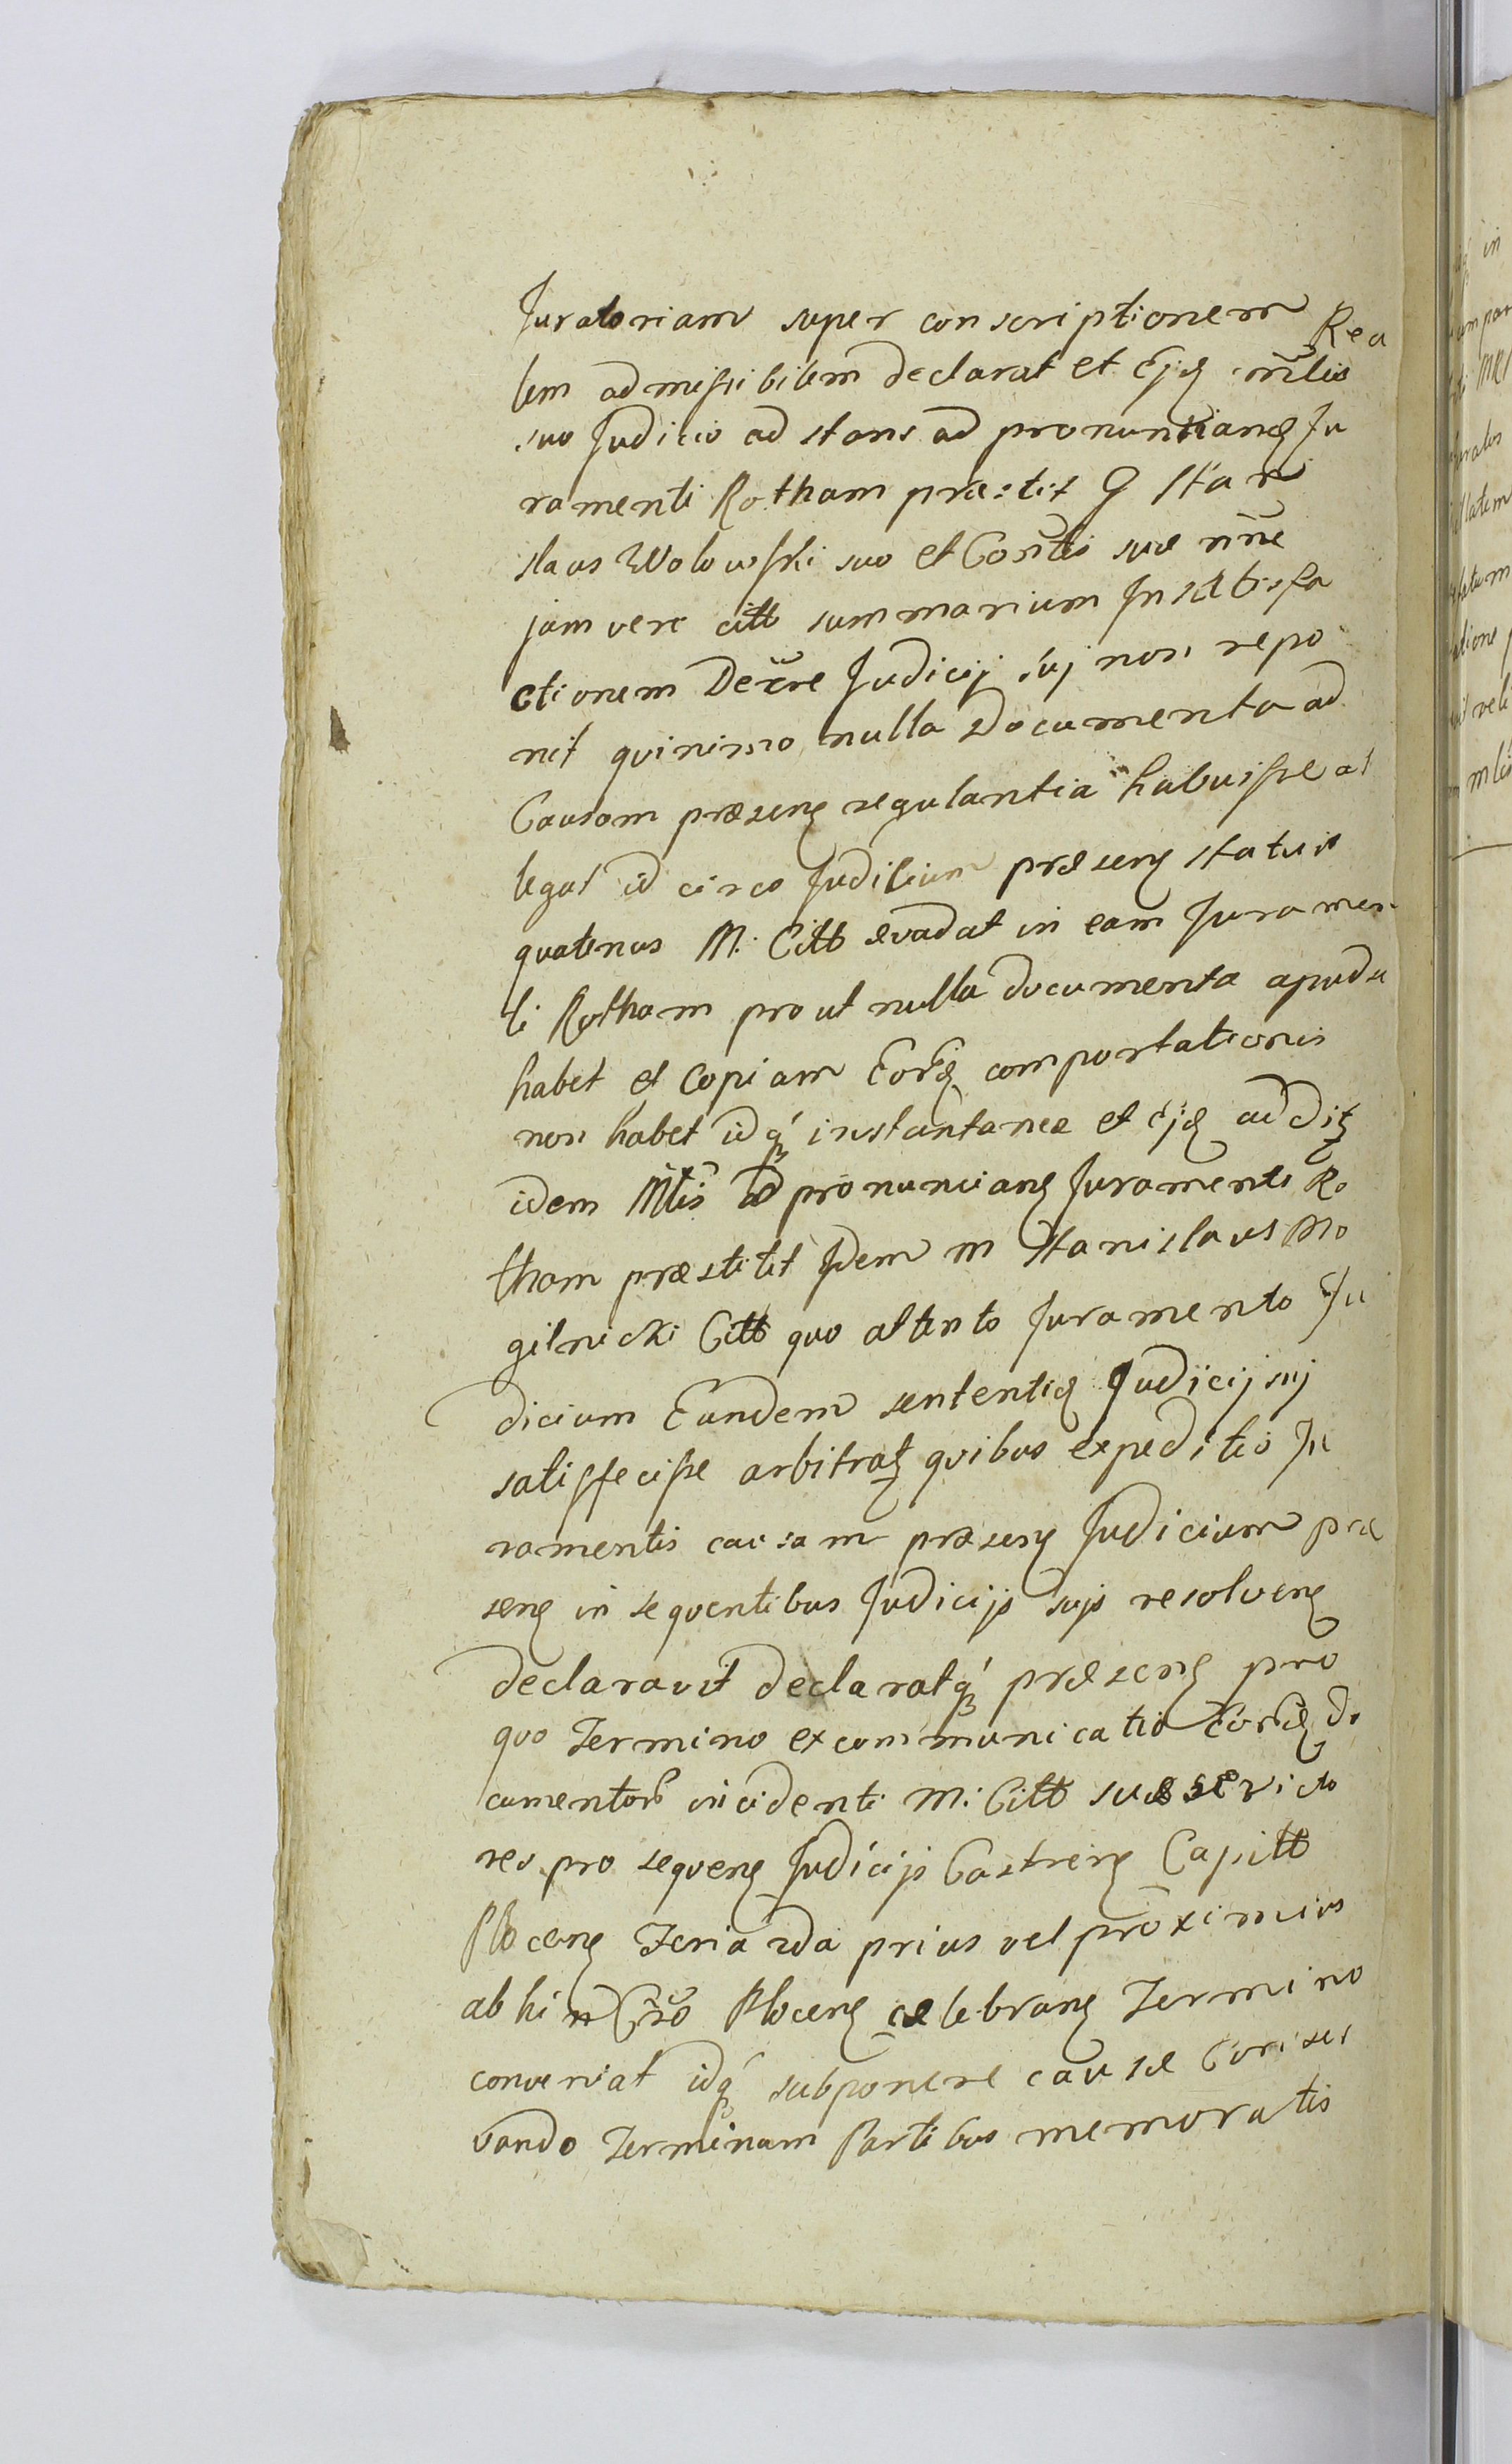 Juratoriam super conscriptionem Rea
lem admissibilem declarat et Ejq mlis
suo Judicio ad stans ad pronuntiang Ju
ramenti Rotham præstit G Stani
slaus Wolowski suo et Contis suæ nne
jam vero citt summarium In satisfa
ctionem Decre Judicij suj non repo
nit quinimo nulla Documenta ad
Causam præseng regulantia habuisse al
legat id circo Judicium præseng statuit
quatenus M. Citt evadat in eam Juramen
ti Rotham prout nulla documenta apud se
habet et Copiam Eorq comportationis
non habet idq instantanee et Ejq addit
idem Mtis ad pronunciang Juramenti Ro
tham præstitit Idem M Stanislaus Mo
gilnicki Citt quo attento Juramento Ju
dicium Eundem sententiæ Judicij suj
satisfecisse arbitrat quibus expeditis Ju
ramentis causam præseng Judicium præ
seng in sequentibus Judicijs sujs resolveng
declaravit declaratq præseng pro
quo Termino excommunicatio Eorq Do
cumentorum incidenti M: Citt suæ
res pro sequeng Judicijs Castreng Capitt
Ploceng Feria 2da prius vel proximius
ab hinc Ploceng celebrang Termino
conveniat idq subponere causæ Conser
vando Terminum Partibus memoratis